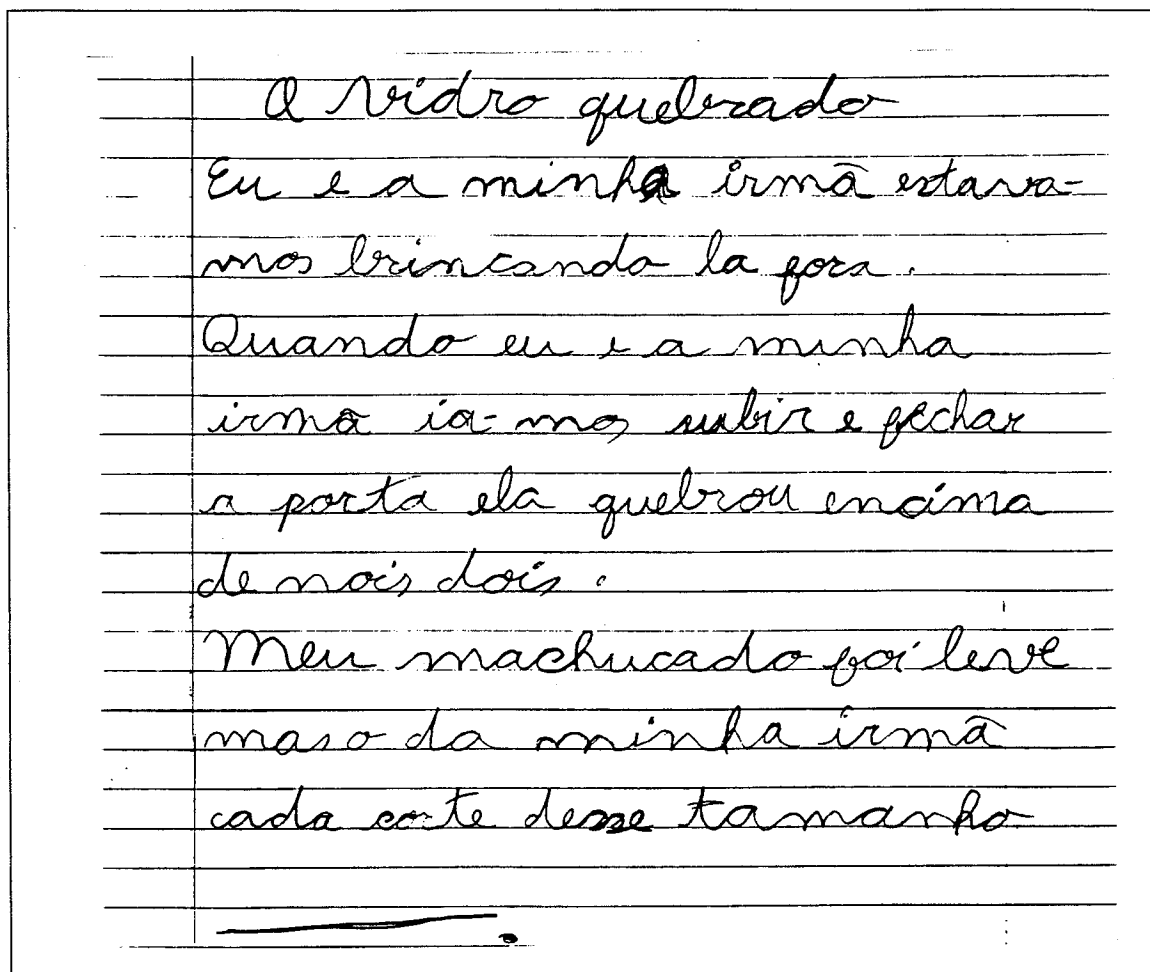 O Vidro quebrado
Eu e a minha irmã estava-
mos brincando la fora.
Quando eu e a minha
irmã ia-mos subir e fechar
a porta ela quebrou encima
de nois dois.
Meu machucado foi leve
mas o da minha irmã
cada corte desse tamanho